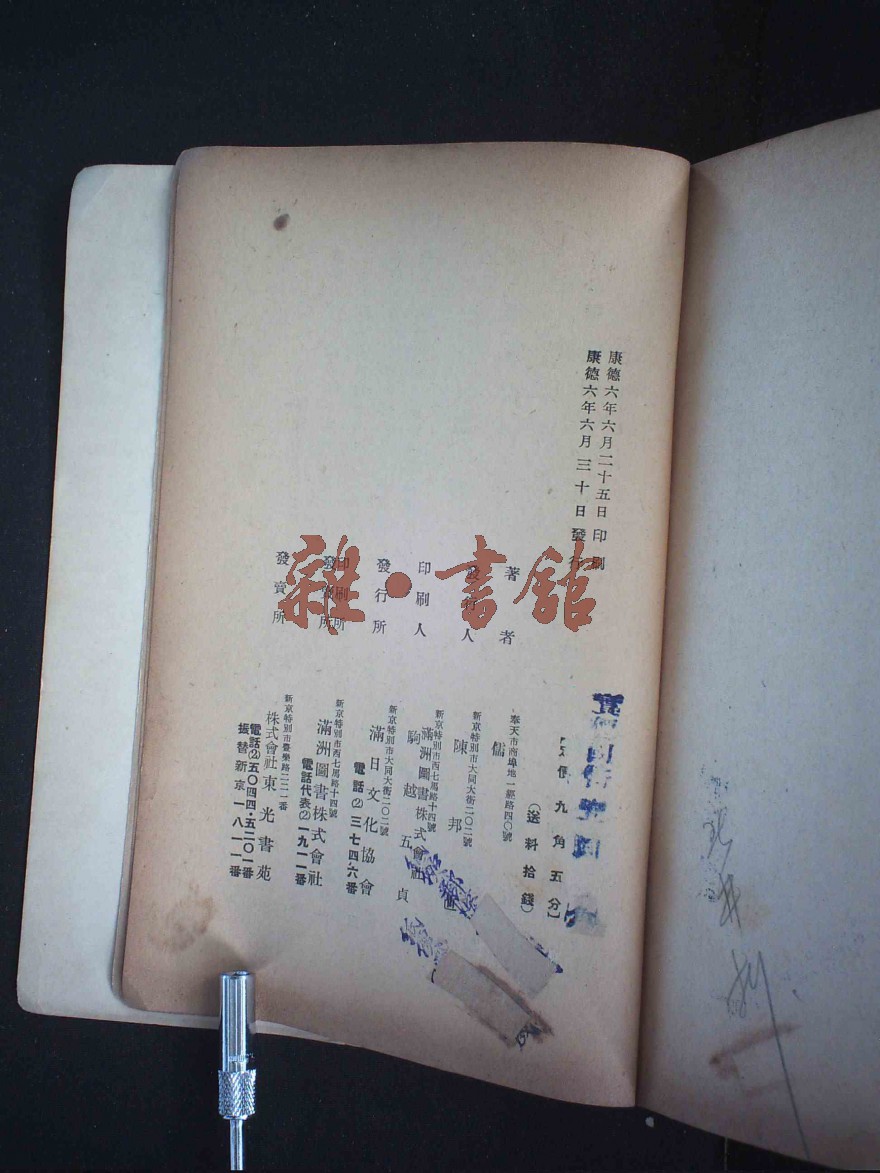 康德六年六月二十五日印刷
康德六年六月三十日發行
【定價九角五分】
(送料拾錢)
著者
奉天市南埠地一經路四〇號
儒
發行人
新京特別市大同大街二〇二號
陳邦
印刷人
新京特別市西七馬路十四號
滿洲圖書株式會社
駒越五貞
發行所
新京特別市大同大街二〇二號
滿日文化協會
電話(2)三七四六番
印刷所
發賣所
新京特別市西七馬路十四號
滿洲圖書株式會社
電話代表(2)一九一一番
發賣所
新京特別市豐樂路二二一番
株式會社東光書苑
電話(2)五〇四四·五二〇一番
振替新京一八一一番
雜·書館